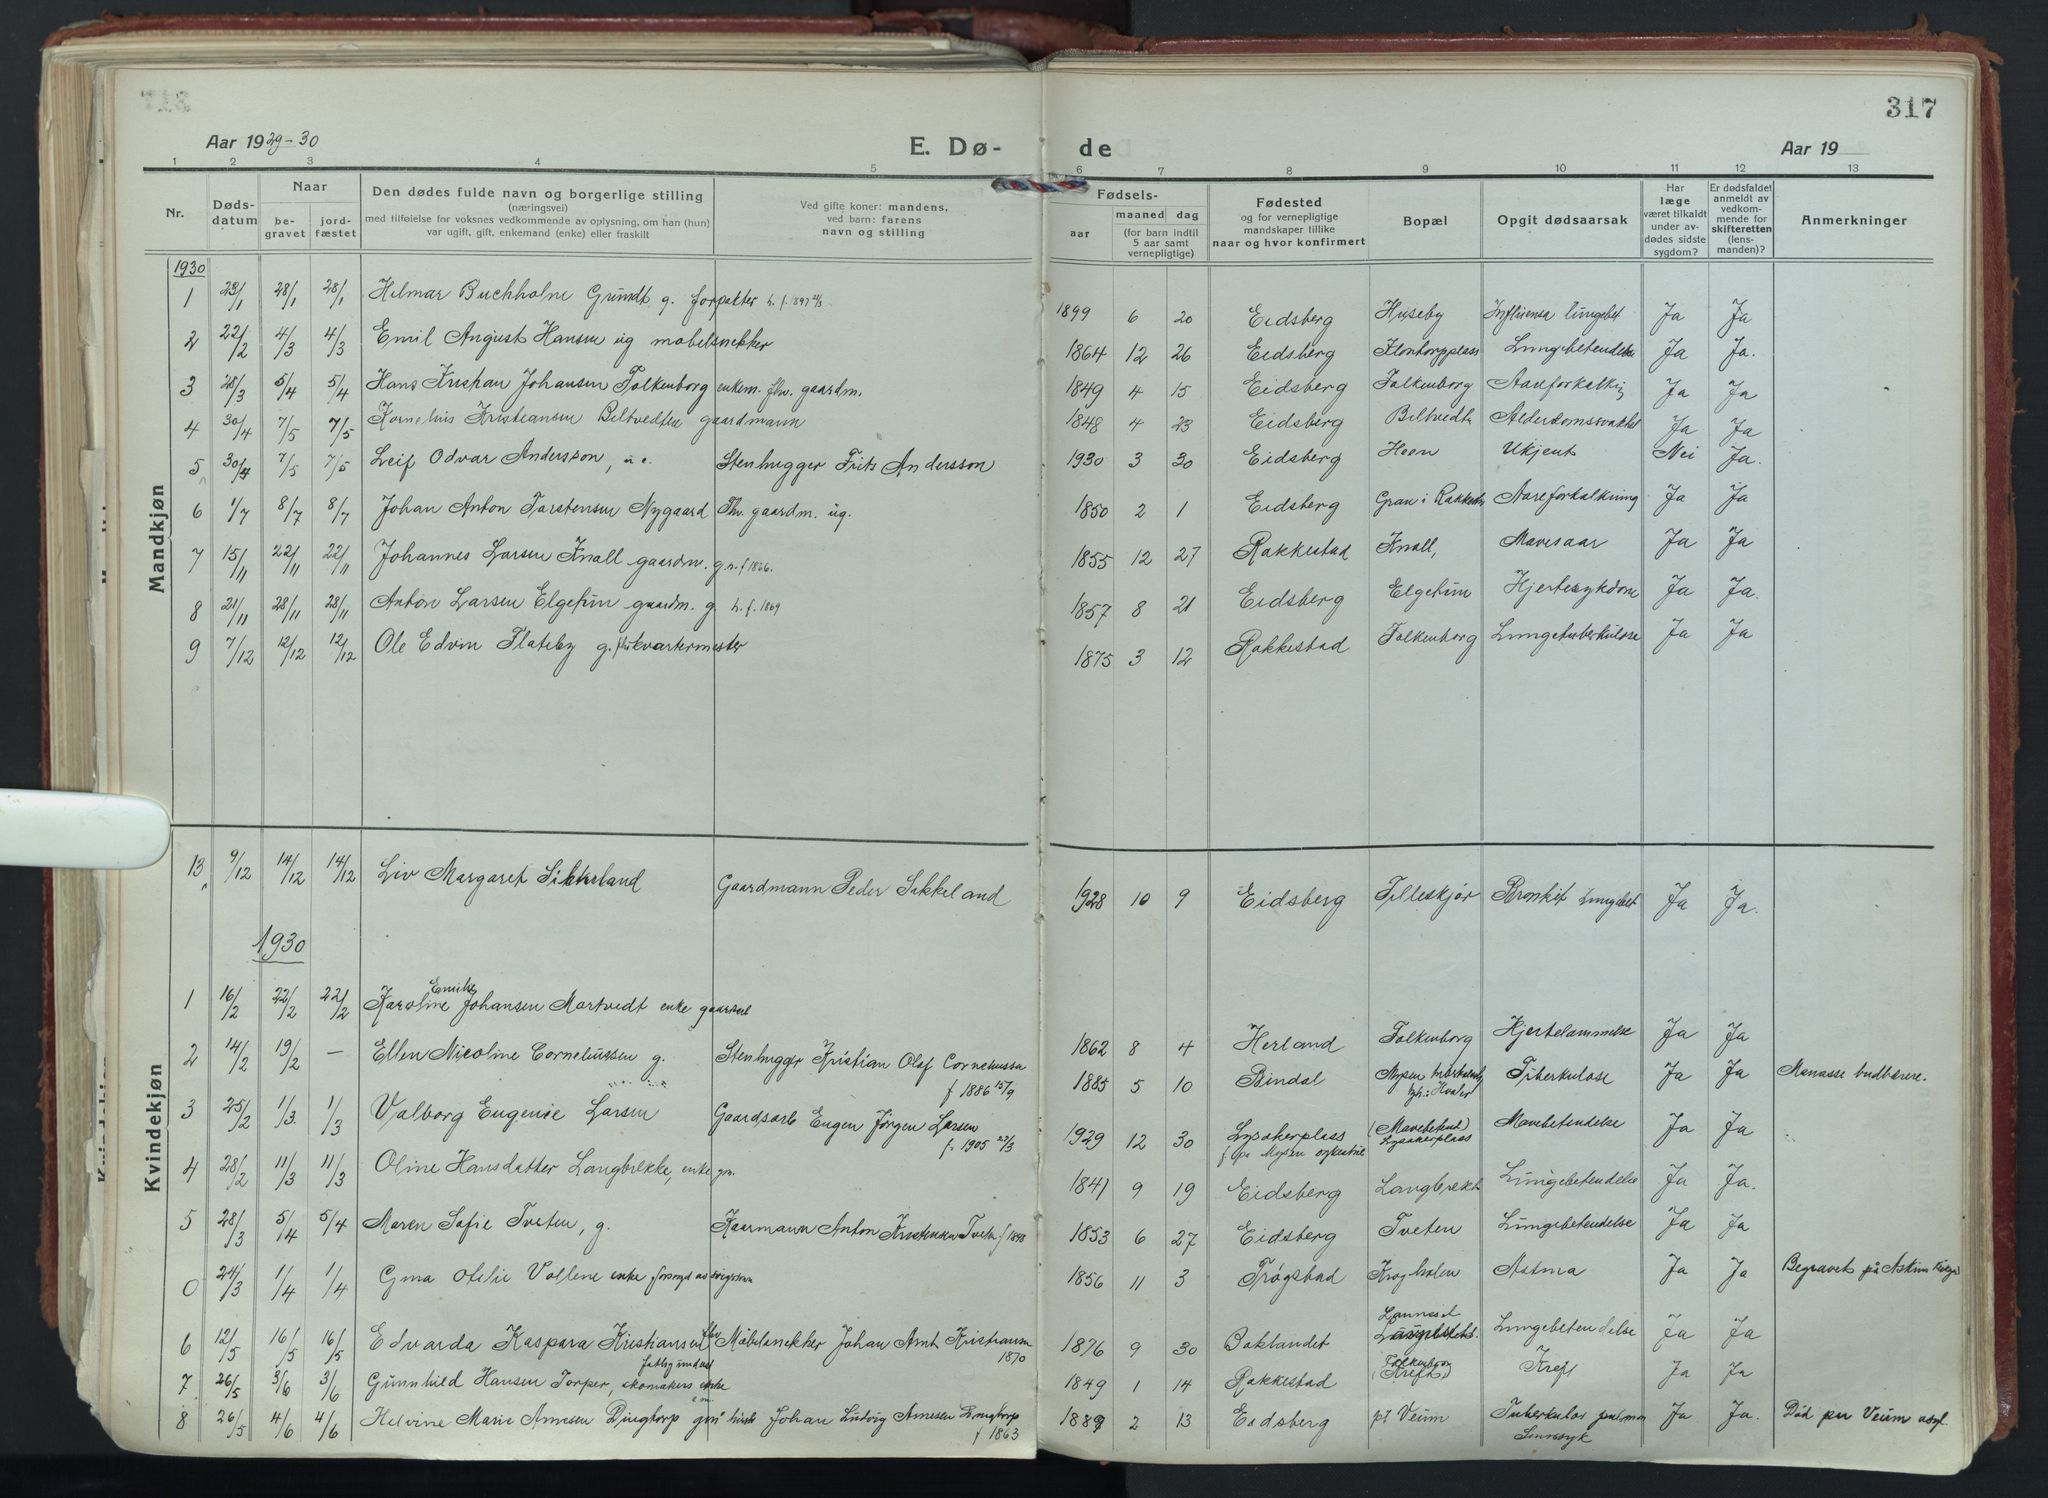 317
Aar 1929-30 E. Dø- de Aar 19
1 2 3 4 5 6 7 8 9 10 11 12 13
Nr. Døds-datum Naar be-gravet jord-fæstet
Den dødes fulde navn og borgerlige stilling
(næringsvei)
med tilføielse for voksnes vedkommende av oplysning, om han (hun)
var ugift, gift, enkemand (enke) eller fraskilt
Ved gifte koner: mandens,
ved barn: farens
navn og stilling
Fødsels-
aar maaned dag
(for barn indtil
5 aar samt
vernepligtige)
Fødested
og for vernepligtige
mandskaper tillike
naar og hvor konfirmert
Bopæl
Opgit dødsaarsak
Har
læge
været tilkaldt
under av-
dødes sidste
sygdom?
Er dødsfaldet
anmeldt av
vedkom-
mende for
skifteretten
(lens-
manden)?
Anmerkninger
Mandkjøn
1930
1 23/1 28/1 28/1 Hilmar Buchholm Grundt g. forpakter h. f. 1897 1899 6 20 Eidsberg Huseby Influensa lungebet Ja Ja
2 22/2 4/3 4/3 Emil August Hansen ug møbelsnekker 1864 12 26 Eidsberg Lungebetendelse Ja Ja.
3 28/3 5/4 5/4 Hans Kristian Johansen Folkenborg enkem. fhv. gaardm. 1849 4 15 Eidsberg Folkenborg Aareforkalkng Ja Ja
4 30/4 7/5 7/5 Kornelius Kristiansen Biltvedten gaardmann 1848 4 23 Eidsberg Biltvedt Alderdomssvakhet Ja Ja
5 30/4 7/5 7/5 Leif Odvar Andersson, Stenhugger Frits Andersson 1930 3 30 Eidsberg Heen Ukjent Nei Ja.
6 1/7 8/7 8/7 Johan Anton Torstensen Nygaard Fhv. gaardm. ug. 1850 2 1 Eidsberg Gran i Rakkestad Aareforkalkning Ja Ja
7 15/11 22/11 22/11 Johannes Larsen Knoll gaardm. g. h. f 1866. 1855 12 27 Rakkestad Knoll, Mavesaar Ja Ja
8 21/11 28/11 28/11 Anton Larsen Elgetun gaardm. g. h. f. 1869 1857 8 21 Eidsberg Elgetun Hjertesykdom Ja Ja.
9 7/12 12/12 12/12 Ole Edvin Flateby g. fhv kvartermester 1875 3 12 Rakkestad Folkenborg Lungetuberkulose Ja Ja
Kvindekjøn
13 9/12 14/12 14/12 Liv Margaret Sikkeland Gaardmann Peder Sikkeland 1928 10 9 Eidsberg Filleskjør Bronkit Lungebet Ja Ja.
1930
1 16/2 22/2 22/2 Karoline Emilie Johansen Mortvedt enke 1862 8 4 Herland Folkenborg Hjertelammelse Ja Ja
2 14/2 19/2 — Ellen Nicoline Corneliussen g. Stenhugger Kristian Olaf Corneliussen
f 1886 15/9 1885 5 10 Bindal Mysen Tuberkulose Ja Ja Menasse budbærere.
3 25/2 1/3. 1/3 Valborg Eugenie Larsen Gaardsarb Eugen Jørgen Larsen
f. 1905 27/3 1929 12 30 Lysakerplass (Mavebetent) Mavebetendelse Ja Ja
f. på Mysen Lysakerplass
4 28/2 11/3 11/3 Oline Hansdatter Langbrekke, enke gm. 1841 9 19 Eidsberg Langbrekk Lungebetendelse Ja Ja.
5 28/3 5/4 5/4 Maren Sofie Tveten, g. Kaarmann Anton Kristensen Tveten f 1848 1853 6 27 Eidsberg Tveten Lungebetendelse Ja Ja
0 24/3 1/4 1/4 Gina Otilie Vollene enke forsørgd av svigersønn 1856 11 3 Trøgstad Krogholen Astma Ja Ja Begravet på Askim
6 12/5 16/5 16/5 Edvarda Kaspara Kristiansen fhv Møbelsnekker Johan Arnt Kristiansen
1870 1876 9 30 Baklandet Lungebetendelse Ja Ja
7 26/5 3/6 3/6 Gunnhild Hansen Torper, skomakers enke 1849 1 14 Rakkestad Folkenborg (Kreft) Kreft Ja Ja
8 26/5 4/6 4/6 Helvine Marie Arnesen Dingtorp gm. Johan Ludvig Arnesen Dingtorp
f 1863 1889 2 13 Eidsberg pt Veum Tuberkulos pulmon Ja Ja. Død på Veum asyl.
Sinnssyk